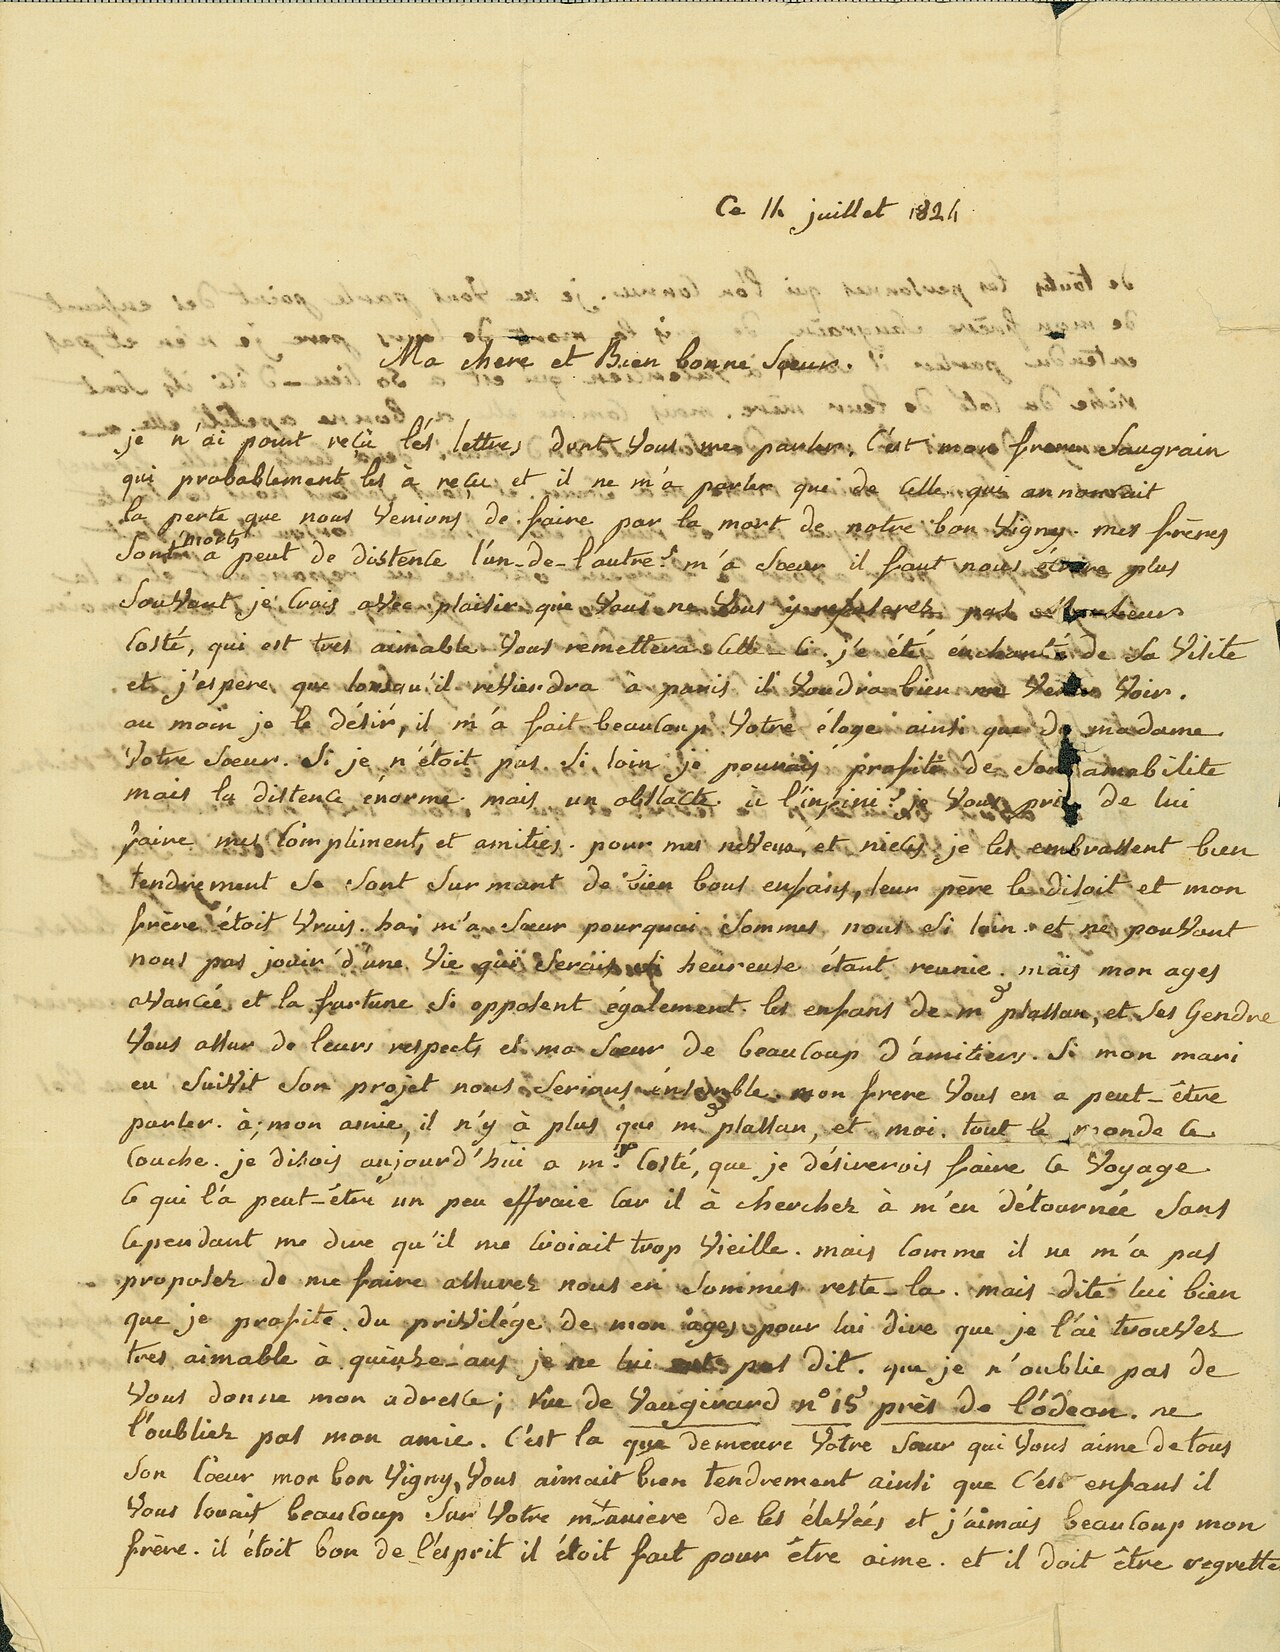 Ce 14 juillet 1824
Ma chere et Bien bonne Soeur.
je n'ai point reçu lés lettres dont Vous me parler, C'est mon frere Saugrain
qui probablement les à reçu et il ne m'a parler que de Celle qui annonsait
la perte que nous Venions de faire par la mort de notre bon Vigny. mes frères
morts
Sont a peut de distence l'un-de-l'autre. m'a Soeur il faut nous écrire plus
SouVant je Crois aVec plaisir que Vous ne Vous y refuserez pas
Costé, qui est tres aimable Vous remettera Cette Ci. j'e été enchanté de Sa Visite
et j'espere que lorsqu'il reViendra à paris il Voudra bien me Voir.
au moin je le désir, il m'a fait beauCoup Votre éloge ainsi que de madame
Votre Soeur. Si je n'étoit pas Si loin je pourais profité de Son amabilite
mais la distence énorme mais un obstacle à l'infini. je Vous prie de lui
faire mes Compliment, et amities. pour mes neVeux, et nieces je les embrassent bien
tendrement Se Sont Surmant de bien bons enfans, leur père le disoit et mon
frère étoit Vrais. ha; m'a Soeur pourquoi Sommes nous Si loin. et ne pouVant
nous pas jouir d'une Vie qui Serais Si heureuse étant reunie. mais mon ages
aVancée et la fortune Si opposent également. les enfans de mr plassan, et Ses Gendre
Vous assur de leurs respects et ma Soeur de beauCoup d'amitiers. Si mon mari
eu SuiVit Son projet nous Serions énsemble. mon frere Vous en a peut-être
parler. à; mon amie, il n'y à plus que mr plassan, et moi. tout le monde Ce
Couche. je disois aujourd'hui a mr. Costé, que je désirerois faire Ce Voyage
Ce qui l'a peut-être un peu effraie Car il à Cherchez à m'en détournée Sans
Cependant me dire qu'il me Croiait trop Vieille. mais Comme il ne m'a pas
proposez de me faire assurez nous en Sommes reste-la. mais dite lui bien
que je profite du priVilége de mon ages pour lui dire que je l'ai trouVez
tres aimable à quinze-ans je ne lui pas dit. que je n'oublie pas de
Vous donne mon adresse; rue de Vaugirard n° 15 près de l'ódeon. ne
l'oubliez pas mon amie. C'est la que demeure Votre Soeur qui Vous aime de tous
Son Coeur mon bon Vigny, Vous aimait bien tendrement ainsi que C'est enfans il
Vous louait beauCoup Sur Votre maniere de les éleVées et j'aimais beauCoup mon
frère. il étoit bon de l'ésprit il étoit fait pour être aime. et il doit être regrette